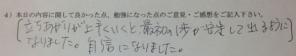 4) 本日の内容に関して良かった点、勉強になった点のご意見・ご感想をご記入下さい。
立ちあがりが上手くいくと最初の1歩が安定して出るように
なりました。自信になりました。